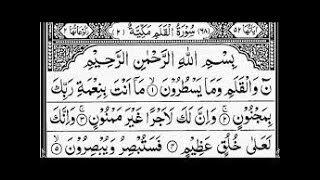 اٰيَاتُهَا ٥٢ (٦٨) سُوْرَةُ الْقَلَمِ مَكِّيَّةٌ (٢) رُكُوْعَاتُهَا ٢
بِسْمِ اللّٰهِ الرَّحْمٰنِ الرَّحِيْمِ
نٓ وَالْقَلَمِ وَمَا يَسْطُرُوْنَ ۝١ مَاۤ اَنْتَ بِنِعْمَةِ رَبِّكَ
بِمَجْنُوْنٍ ۝٢ وَاِنَّ لَكَ لَاَجْرًا غَيْرَ مَمْنُوْنٍ ۝٣ وَاِنَّكَ
لَعَلٰى خُلُقٍ عَظِيْمٍ ۝٤ فَسَتُبْصِرُ وَيُبْصِرُوْنَ ۝٥